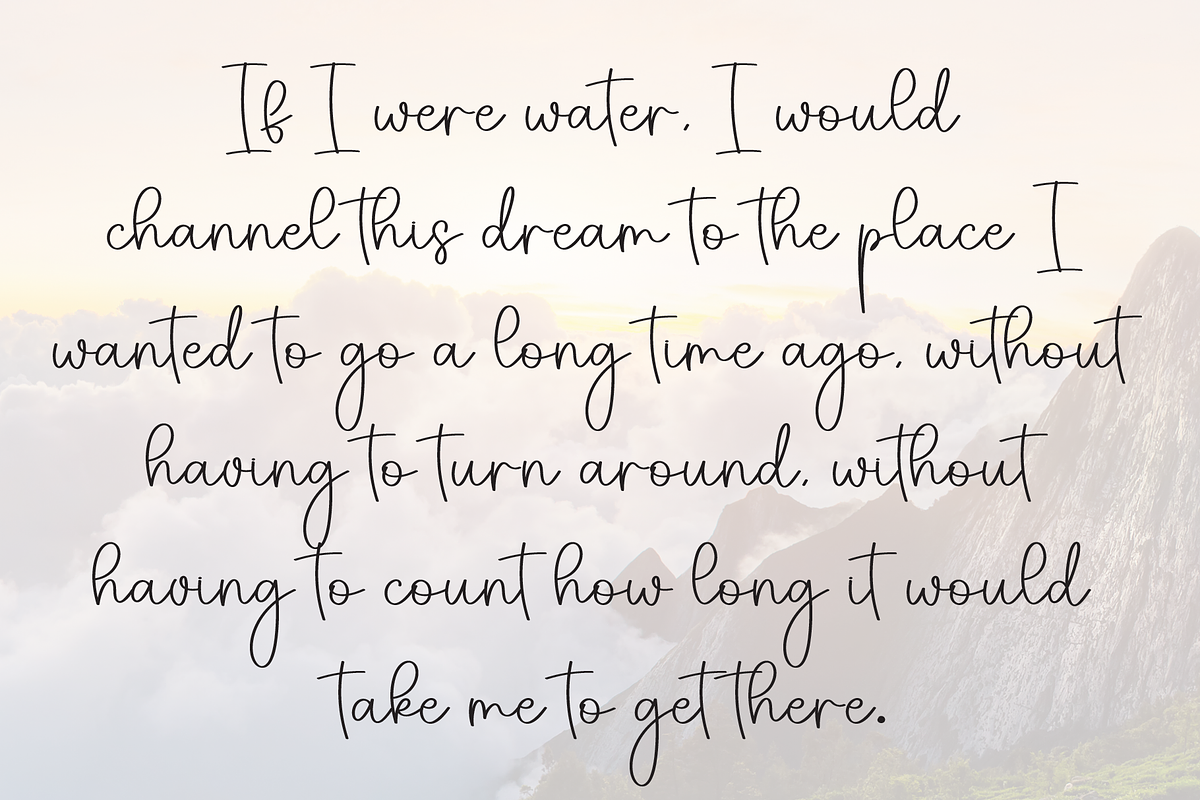 If I were water, I would
channel this dream to the place I
wanted to go a long time ago, without
having to turn around, without
having to count how long it would
take me to get there.